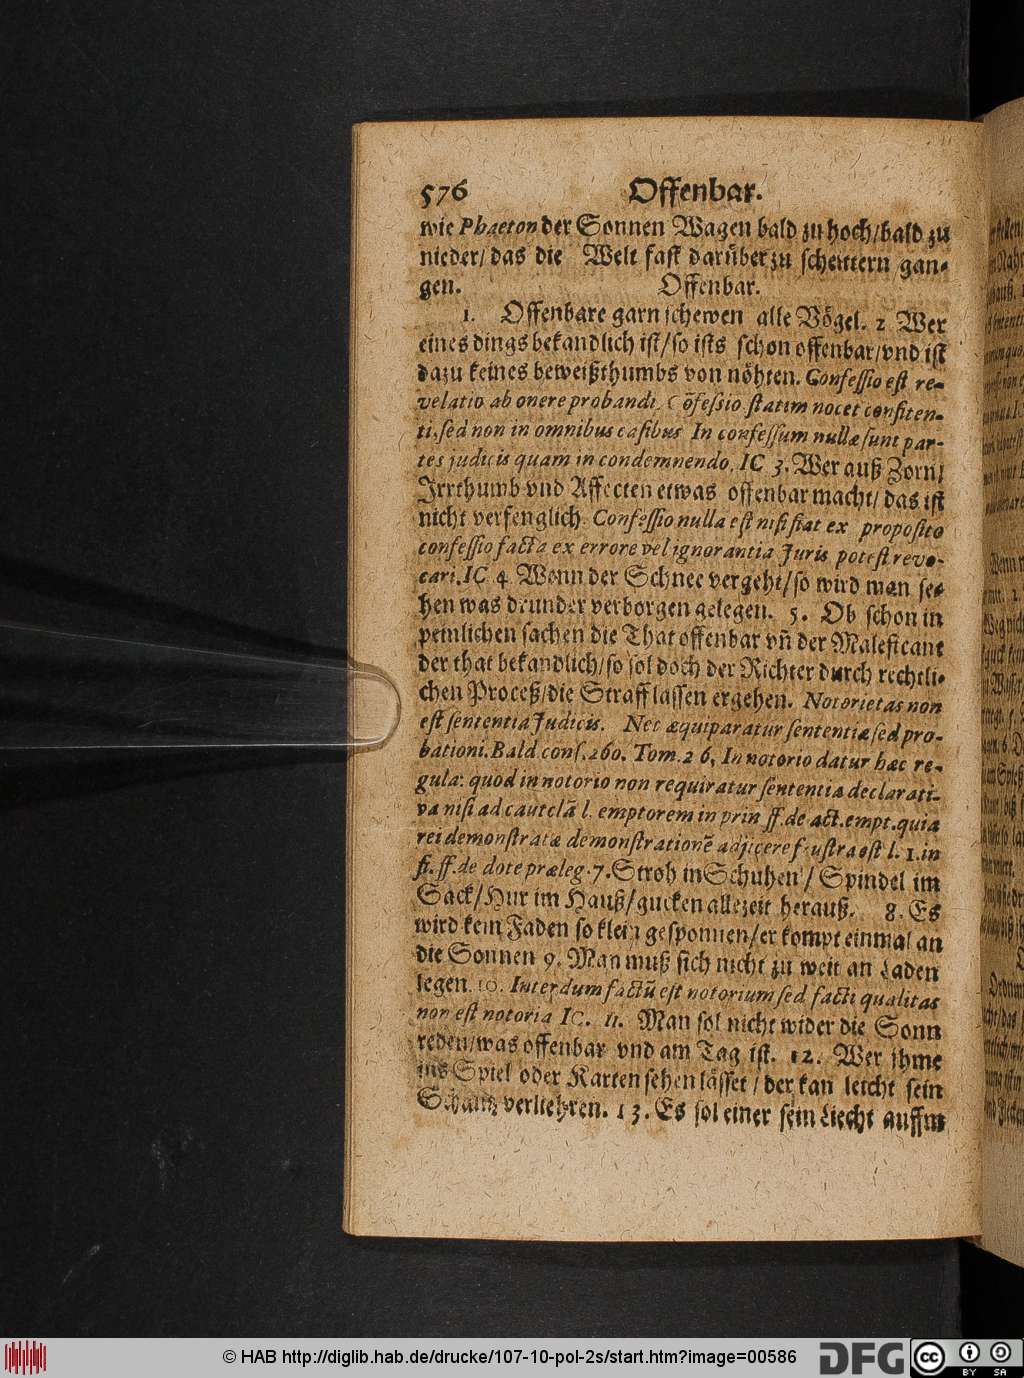 576 Offenbar.
wie Phaeton der Sonnen Wagen bald zu hoch/bald zu
nieder/ das die Welt fast darüber zu scheittern gan-
gen. Offenbar.
1. Offenbare garn schewen alle Vögel. 2 Wer
eines dings bekandlich ist/so ists schon offenbar/vnd ist
dazu keines beweißthumbs von nöhten. Confessio est re-
velatio ab onere probandi. Cõfessio statim nocet confiten-
ti, sed non in omnibus casibus In confessum nullæ sunt par-
tes judicis quam in condemnendo, IC 3. Wer auß Zorn/
Irrthumb vnd Affecten etwas offenbar macht/ das ist
nicht verfenglich. Confessio nulla est nisi fiat ex proposito
confessio facta ex errore vel ignorantia Juris potest revo-
cari. IC 4 Wenn der Schnee vergeht/so wird man se-
hen was drunder verborgen gelegen. 5. Ob schon in
peinlichen sachen die That offenbar vñ der Maleficant
der that bekandlich/so sol doch der Richter durch rechtli-
chen Proceß/die Straff lassen ergehen. Notorietas non
est sententia Judicis. Nec æquiparatur sententiæ sed pro-
bationi. Bald. cons. 260. Tom. 2 6, In notorio datur hæc re-
gula: quod in notorio non requiratur sententia declarati-
va nisi ad cautelã l. emptorem in prin ff. de act. empt. quia
rei demonstratæ demonstrationẽ adjicere frustra est l. 1. in
fi. ff. de dote præleg. 7. Stroh in Schuhen/ Spindel im
Sack/Hur im Hauß/gucken allezeit herauß. 8. Es
wird kein Faden so klein gesponnen/er kompt einmal an
die Sonnen 9. Man muß sich nicht zu weit an Laden
legen. 10. Interdum factũ est notorium sed facti qualitas
non est notoria IC. 11. Man sol nicht wider die Sonn
reden/was offenbar vnd am Tag ist. 12. Wer ihme
ins Spiel oder Karten sehen lässet/ der kan leicht sein
Schantz verliehren. 13. Es sol einer sein Liecht auffm
© HAB http://diglib.hab.de/drucke/107-10-pol-2s/start.htm?image=00586 DFG cc BY SA